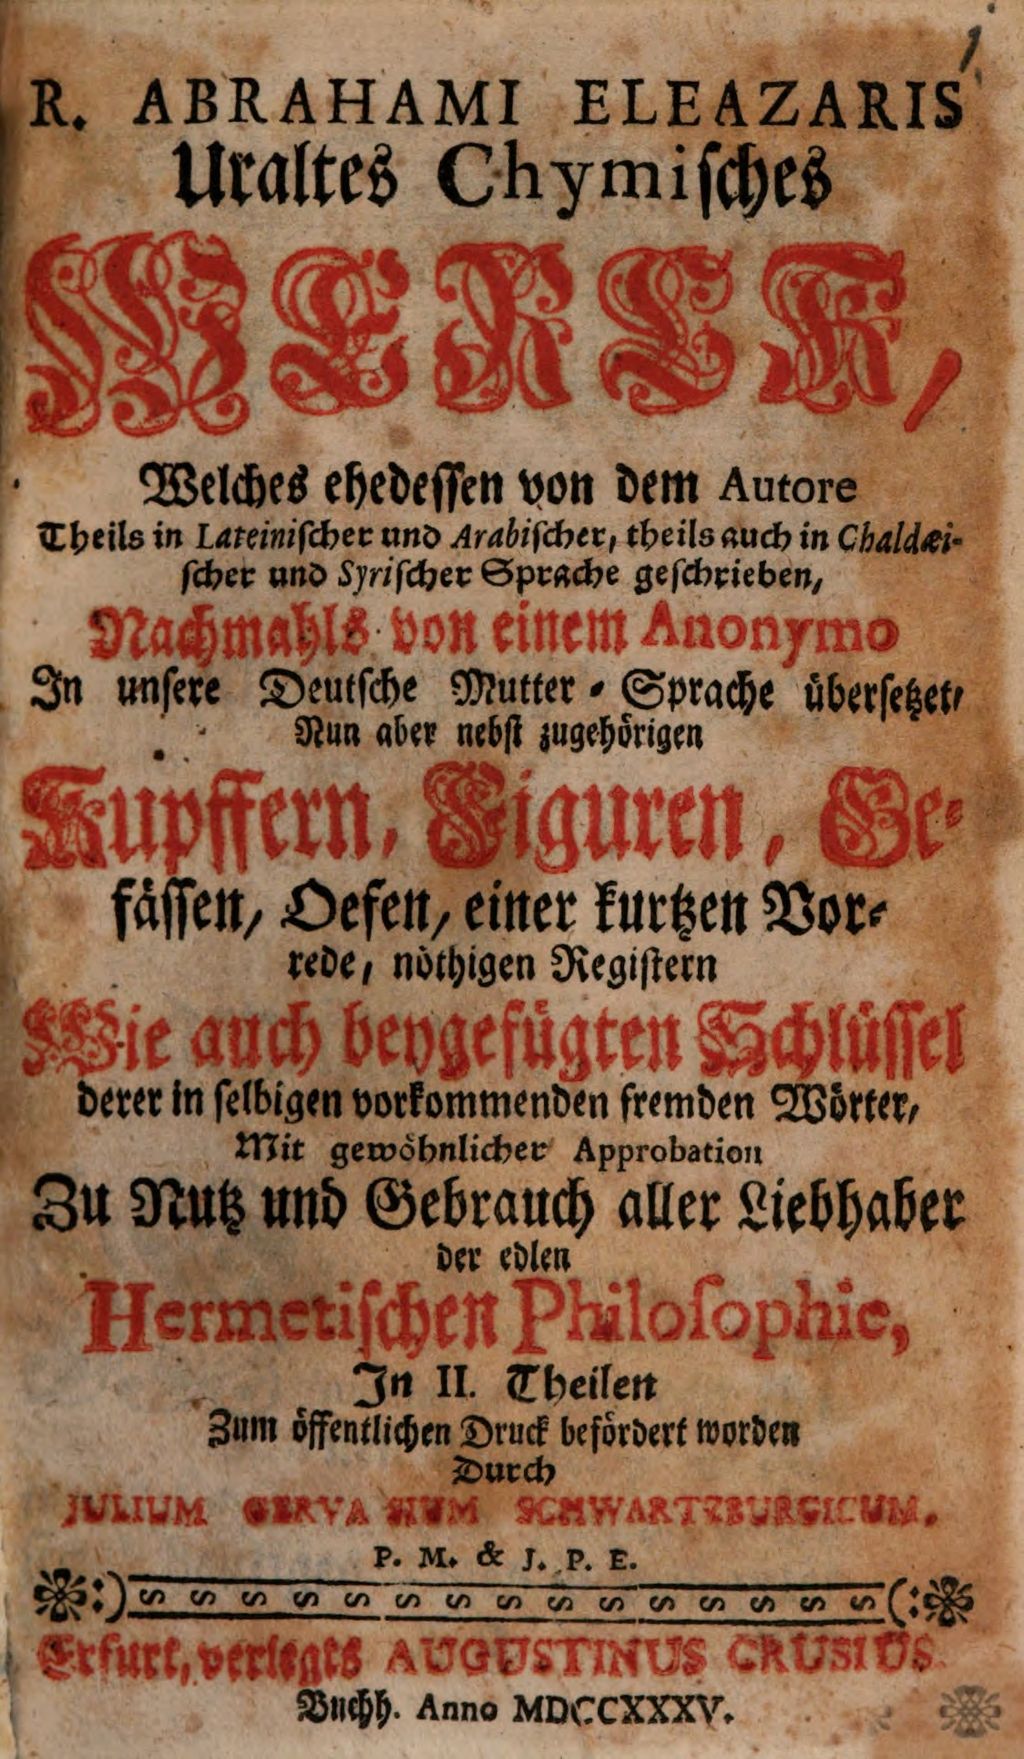 1
R. ABRAHAMI ELEAZARIS
Uraltes Chymisches
WERCK,
Welches ehedessen von dem Autore
Theils in Lateinischer und Arabischer, theils auch in Chaldæi-
scher und Syrischer Sprache geschrieben,
Nachmahls von einem Anonymo
In unsere Deutsche Mutter-Sprache übersetzet,
Nun aber nebst zugehörigen
Kupffern, Figuren, Ge-
fässen, Oefen, einer kurtzen Vor-
rede, nöthigen Registern
Wie auch beygefügten Schlüssel
derer in selbigen vorkommenden fremden Wörter,
Mit gewöhnlicher Approbation
Zu Nutz und Gebrauch aller Liebhaber
der edlen
Hermetischen Philosophie,
In II. Theilen
Zum öffentlichen Druck befördert worden
Durch
JULIUM GERVASIUM SCHWARTZBURGICUM,
P. M. & J. P. E.
Erfurt, verlegts AUGUSTINUS CRUSIUS
Buchh. Anno MDCCXXXV.